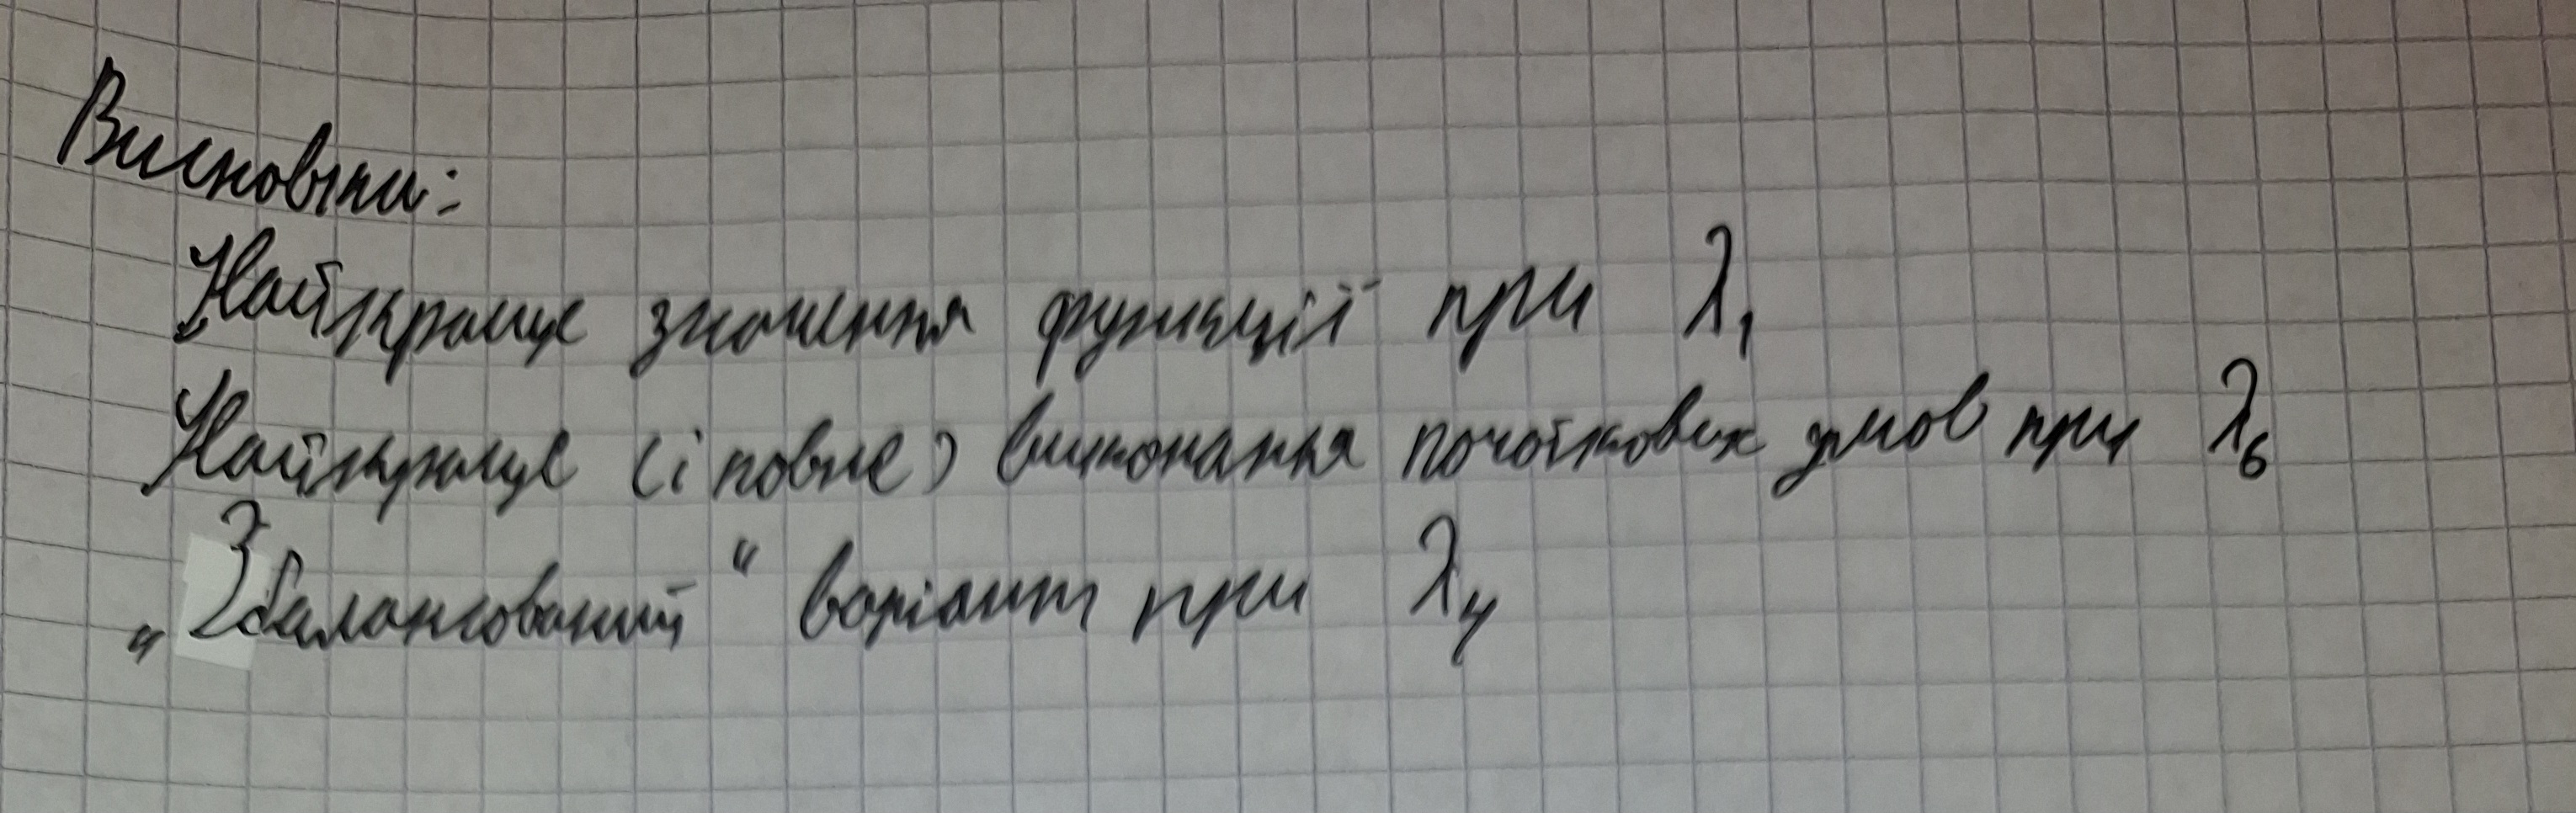 Висновки:
Найкраще значення функції при λ₁
Найкраще (і повне) виконання початкових умов при λ₆
„Збалансований“ варіант при λ₄